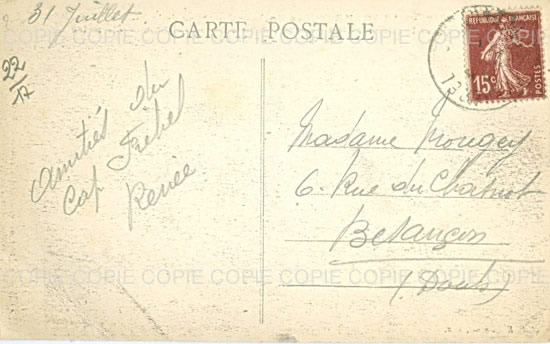 31 Juillet
CARTE POSTALE
COPIE COPIE COPIE COPIE COPIE COPIE COPIE COPIE COPIE
22
17
Amitiés du
Cap Fréhel
Renée
REPUBLIQUE FRANÇAISE
15c
POSTES
Madame Mougey
6. Rue du Chasnot
Besançon
(Doubs)
COPIE COPIE COPIE COPIE COPIE COPIE COPIE COPIE COPIE